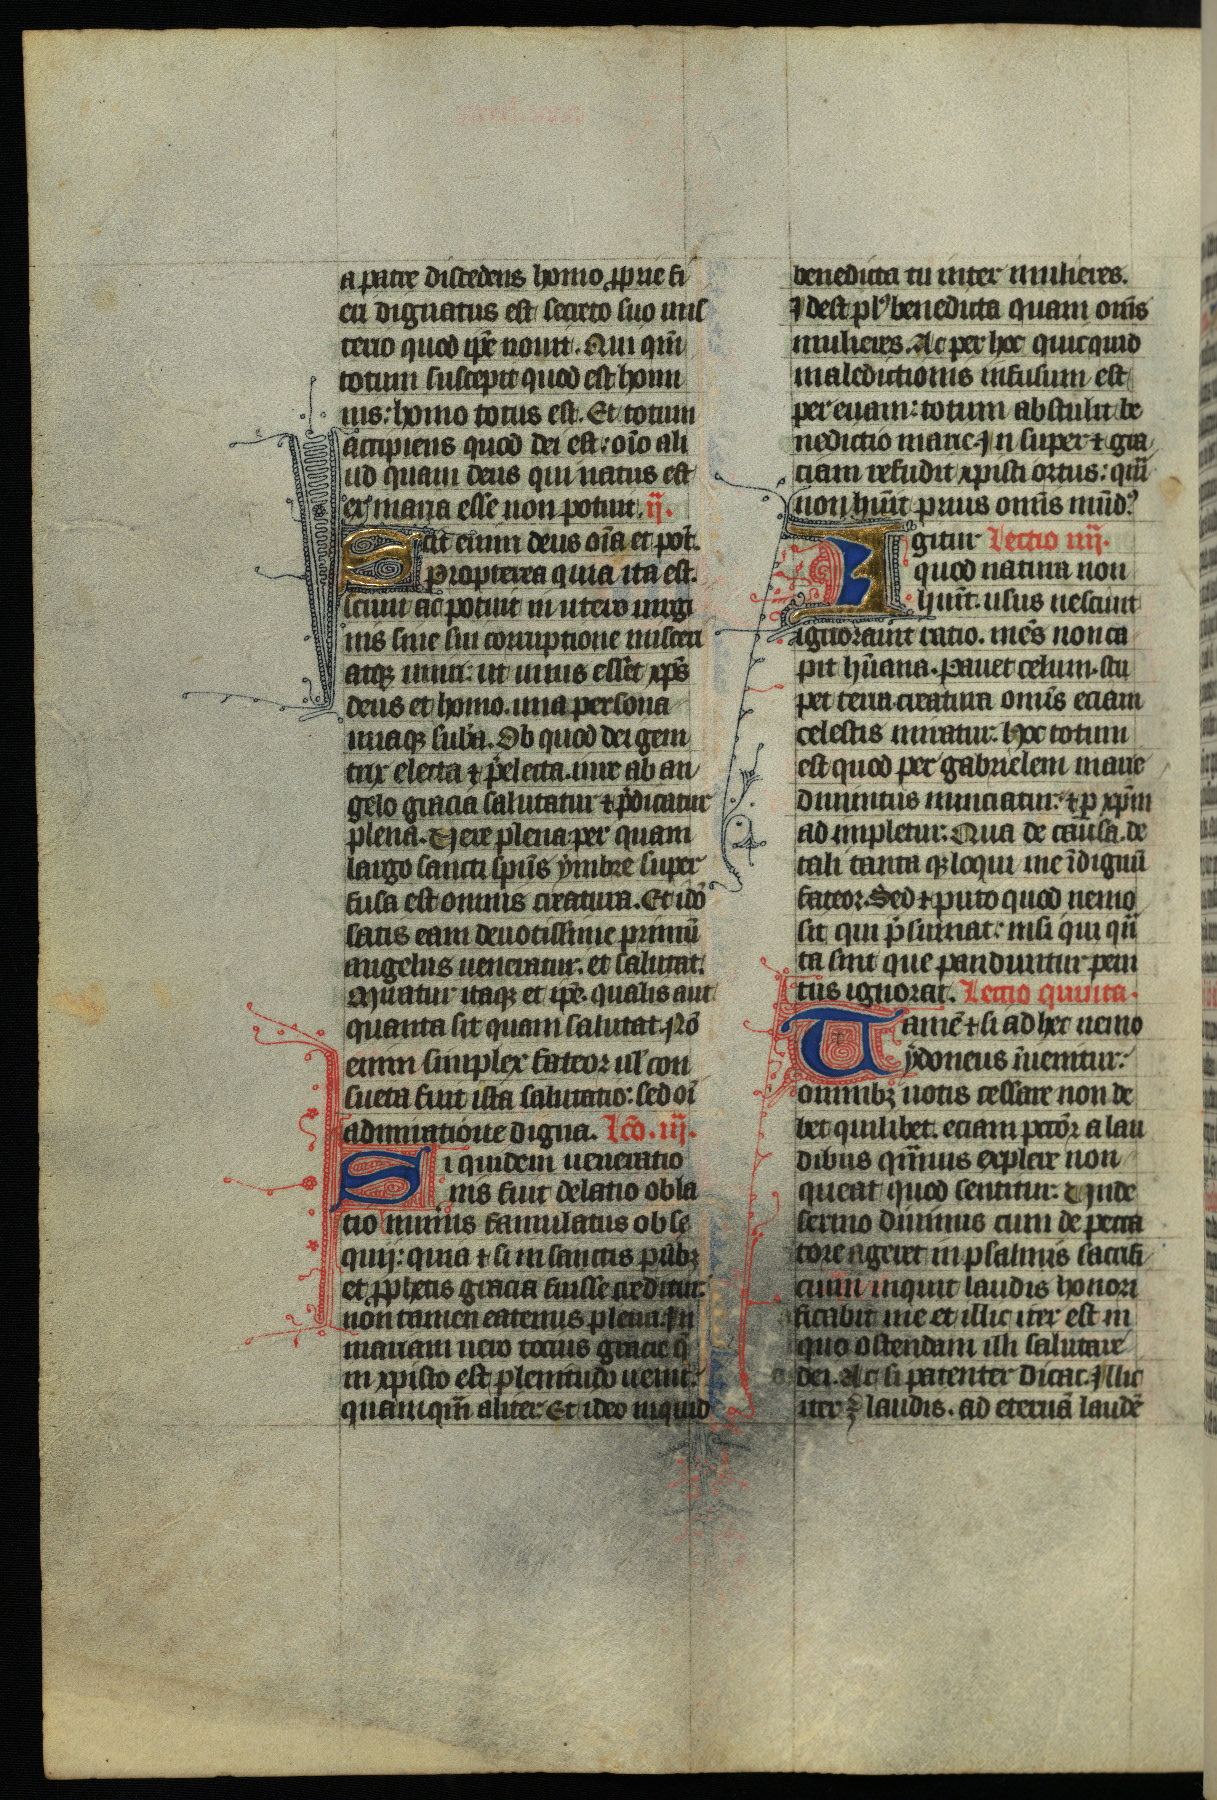 a patre discedens homo ꝓprie fi
eri dignatus est secreto suo mis
terio quod ip̄e nouit. Qui qm̄
totum suscepit quod est homi
nis: homo totus est. Et totum
accipiens quod dei est: oīo ali
ud quam deus qui natus est
ex maria esse non potuit. ij.
Scit enim deus oīa et pot̄.
Propterea quia ita est.
sciuit ac potuit in utero uirgi
nis sine sui corruptione misceri
atqꝫ uniri: ut unus esset xp̄s
deus et homo. una persona
unaqꝫ sub̄a. Ob quod dei geni
trix electa ⁊ p̄electa. iure ab an
gelo gracia salutatur ⁊ p̄dicatur
plena. Uere plena per quam
largo sancti sp̄us ymbre super
fusa est omnis creatura. Et idō
satis eam deuotissime primū
angelus ueneratur. et salutat.
Miratur itaqꝫ et ip̄e. qualis aut
quanta sit quam salutat. Nō
enim simplex fateor ul con
sueta fuit ista salutatio: sed oī
admiratione digna. Lc̄o. iij.
Si quidem ueneratio
nis fuit delatio obla
tio muniis famulatus obse
quij: quia ⁊ si in sanctis pr̄ibꝫ
et ꝓphetis gracia fuisse creditur:
non tamen eatenus plena. In
mariam uero tocius gracie q̄
in xpisto est plenitudo uenit:
quamqm̄ aliter. Et ideo inquid
benedicta tu inter mulieres.
Idest plꝰ benedicta quam om̄s
mulieres. Ac per hoc quicquid
maledictionis infusum est
per euam: totum abstulit be
nedictio marie. In super ⁊ gra
ciam refudit xpisti ortus: quā
non hūit prius omīs mūdꝰ
Igitur Lectio iiij.
quod natura non
hūit. usus nesciuit
ignorauit ratio. mēs non ca
pit hūana. pauet celum. stu
pet terra. creatura omīs eciam
celestis miratur. hoc totum
est quod per gabrielem marie
diuinitus nunciatur: ⁊ ꝑ xp̄m
ad impletur. Qua de causa. de
tali tanta qꝫ loqui me īdignū
fateor. Sed ⁊ puto quod nemo
sit qui p̄sumat: nisi qui qū
ta sint que panduntur peni
tus ignorat. Lectio quinta.
Tamē ⁊ si ad hec nemo
ydoneus īuenitur:
omnibꝫ uotis cessare non de
bet quilibet. eciam pctōr a lau
dibus qm̄uis explere non
queat quod sentitur. Unde
sermo diuinus cum de pecca
tore ageret in psalmis sacrifi
cium inquit laudis honori
ficabit me et illic iter est in
quo ostendam illi salutare
dei. Ac si patenter dicat. Illic
iter ꝫ laudis. ad eternā laudē